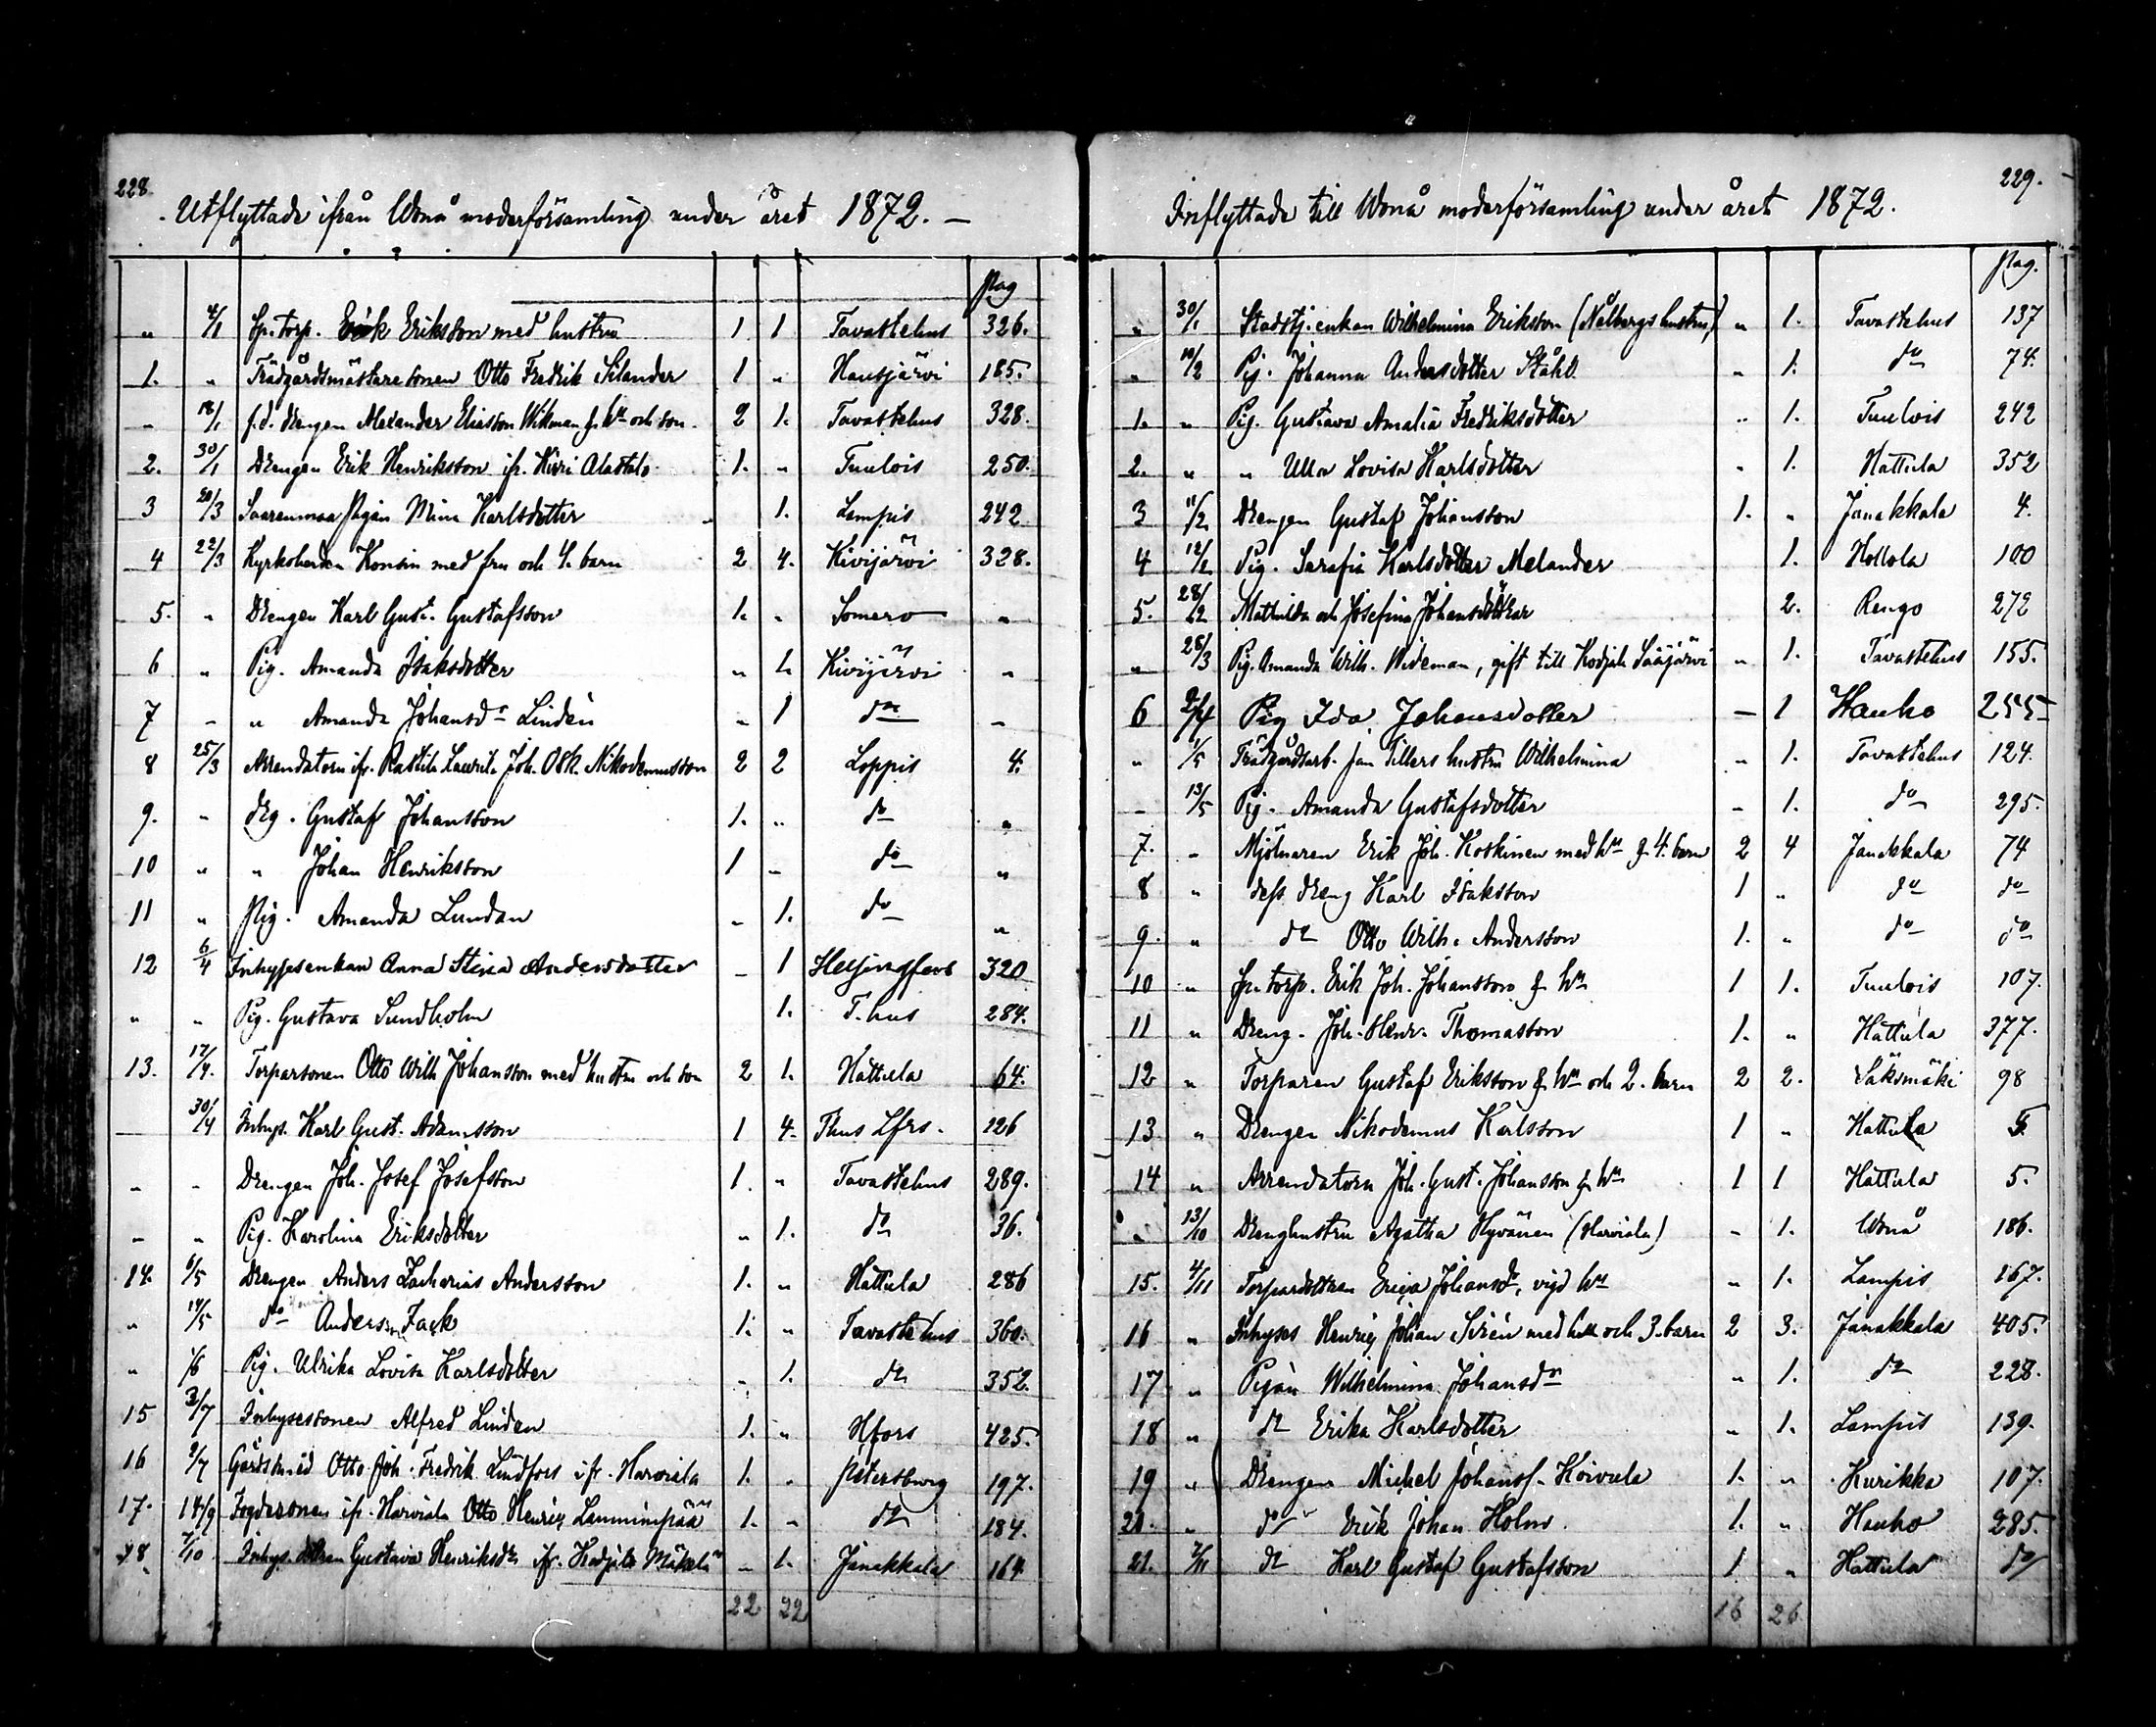 228.
Utflyttade ifrån Wånå moderförsamling under året 1872. —
Pag
" 4/1 Sp. torp. Erik Eriksson med hustru 1 1 Tavastehus 326.
1. " Trädgårdsmästaresonen Otto Fredrik Silander 1 " Hausjärvi 185.
" 18/1 f.d. drengen Alexander Eliasson Wikman j. hu och son 2 1. Tavastehus 328.
2. 30/1 Drengen Erik Henriksson ifr. Alastalo 1. " Tuulois 250.
3 20/3 Saarenmaa Pigan Mina Karlsdotter 1. Lampis 242
4 22/3 Kyrkoherden Konsin med fru och 4. barn 2 4. Kivijärvi 328.
5. " Drengen Karl Gust. Gustafsson 1. " Somero "
6 " Pig. Amanda Isaksdotter " 1. Kivijärvi "
7 " " Amanda Johansdr Lindén " 1 do "
8 25/3 Arrendatorn ifr. Rastila Laurila Joh. Osk. Nikodemusson 2 2 Loppis 4.
9. " drg. Gustaf Johansson 1. " do "
10 " " Johan Henriksson 1 " do "
11 " Pig. Amanda Lundan " 1. do "
12 6/4 Inhysesenkan Anna Stina Andersdotter – 1 Helsingfors 320
" " Pig. Gustava Sundholm 1. T.hus 284.
13. 17/4. Torparsonen Otto Wilh Johansson med hustru och son 2 1. Hattula 64.
— 30/4 Inhys. Karl Gust. Adamsson 1 4. Thus Lfrs. 126
" " Drengen Joh. Josef Josefsson 1. " Tavastehus 289.
" " Pig. Karolina Eriksdotter " 1. do 36.
14. 6/5 Drengen Anders Zacharias Andersson 1. " Hattula 286
" 14/5 do Anders Zack 1. " Tavastehus 360.
" 1/6 Pig. Ulrika Lovisa Karlsdotter " 1. do 352.
15 3/7 Inhysessonen Alfred Linden 1. " Hfors 425.
16 9/7 Gårdsmed Otto Joh. Fredrik Lindfors ifr. Harviala 1. " Petersburg 197.
17. 14/9 Fogdesonen ifr. Harviala Otto Henrik Lamminpää 1. " do 184.
18 7/10 Inhys. dottren Gustava Henriksdr ifr. Kodjala Mäkelä – 1. Janakkala 164
22 22
229.
Inflyttade till Wånå moderförsamling under året 1872.
Pag.
" 30/1 Stadstj. enkan Wilhelmina Eriksson (Nålbergs hustru) " 1. Tavastehus 137
" 10/2 Pig. Johanna Andersdotter Ståhl " 1. do 74.
1. " Pig. Gustava Amalia Fredriksdotter " 1. Tuulois 242
2. " " Ulla Lovisa Karlsdotter " 1. Hattula 352
3 11/2 Drengen Gustaf Johansson 1. " Janakkala 4.
4 12/2 Pig. Serafia Karlsdotter Melander 1. Hollola 100
5. 28/2 Mathilda och Josefina Johansdöttrar 2. Rengo 272
" 28/3 Pig. Amanda Wilh. Wideman, gift till Kodjala Sääjärvi " 1. Tavastehus 155.
6 2/4 Pig Ida Johansdotter — 1 Hauho 255
" 1/5 Trädgårdsarb. Jan Tillers hustru Wilhelmina " 1. Tavastehus 124.
– 13/5 Pig. Amanda Gustafsdotter – 1. do 295.
7. " Mjölnaren Erik Joh. Koskinen med hu j 4. barn 2 4 Janakkala 74
8 " dess dreng Karl Isaksson 1 " do do
9. " do Otto Wilh. Andersson 1. " do do
10 " Sp. torp. Erik Joh. Johansson j hu 1 1. Tuulois 107.
11 " Dreng. Joh. Henr. Thomasson 1. " Hattula 377.
12 " Torparen Gustaf Eriksson j hu och 2. barn 2 2. Sääksmäki 98
13 " Drengen Nikodemus Karlsson 1 " Hattula 5.
14 " Arrendatorn Joh. Gust. Johansson j hu 1 1 Hattula 5.
" 13/10 Drenghustru Agatha Hyvänen (Harviala) – 1. Wånå 186.
15. 4/11 Torpardottren Erica Johansdr, vigd hu " 1. Lampis 167.
16 " Inhyses Henric Johan Sirén med hu och 3. barn 2 3. Janakkala 405.
17 " Pigan Wilhelmina Johansdr " 1. do 228.
18 " do Erika Karlsdotter " 1. Lampis 139.
19 " Drengen Michel Johanss. Koivula 1. " Kurikka 107.
20. " do Erik Johan Holm 1. " Hauho 285.
21. 7/11 do Karl Gustaf Gustafsson 1 " Hattula do
16 26